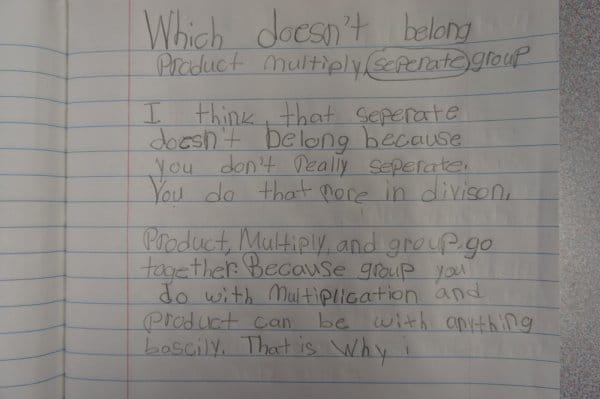 Which doesn't belong
Product multiply, seperate group
I think that seperate
doesn't belong because
you don't really seperate.
You do that more in divison.
Product, Multiply, and group go
together. Because group you
do with Multiplication and
product can be with anything
bascily. That is Why i